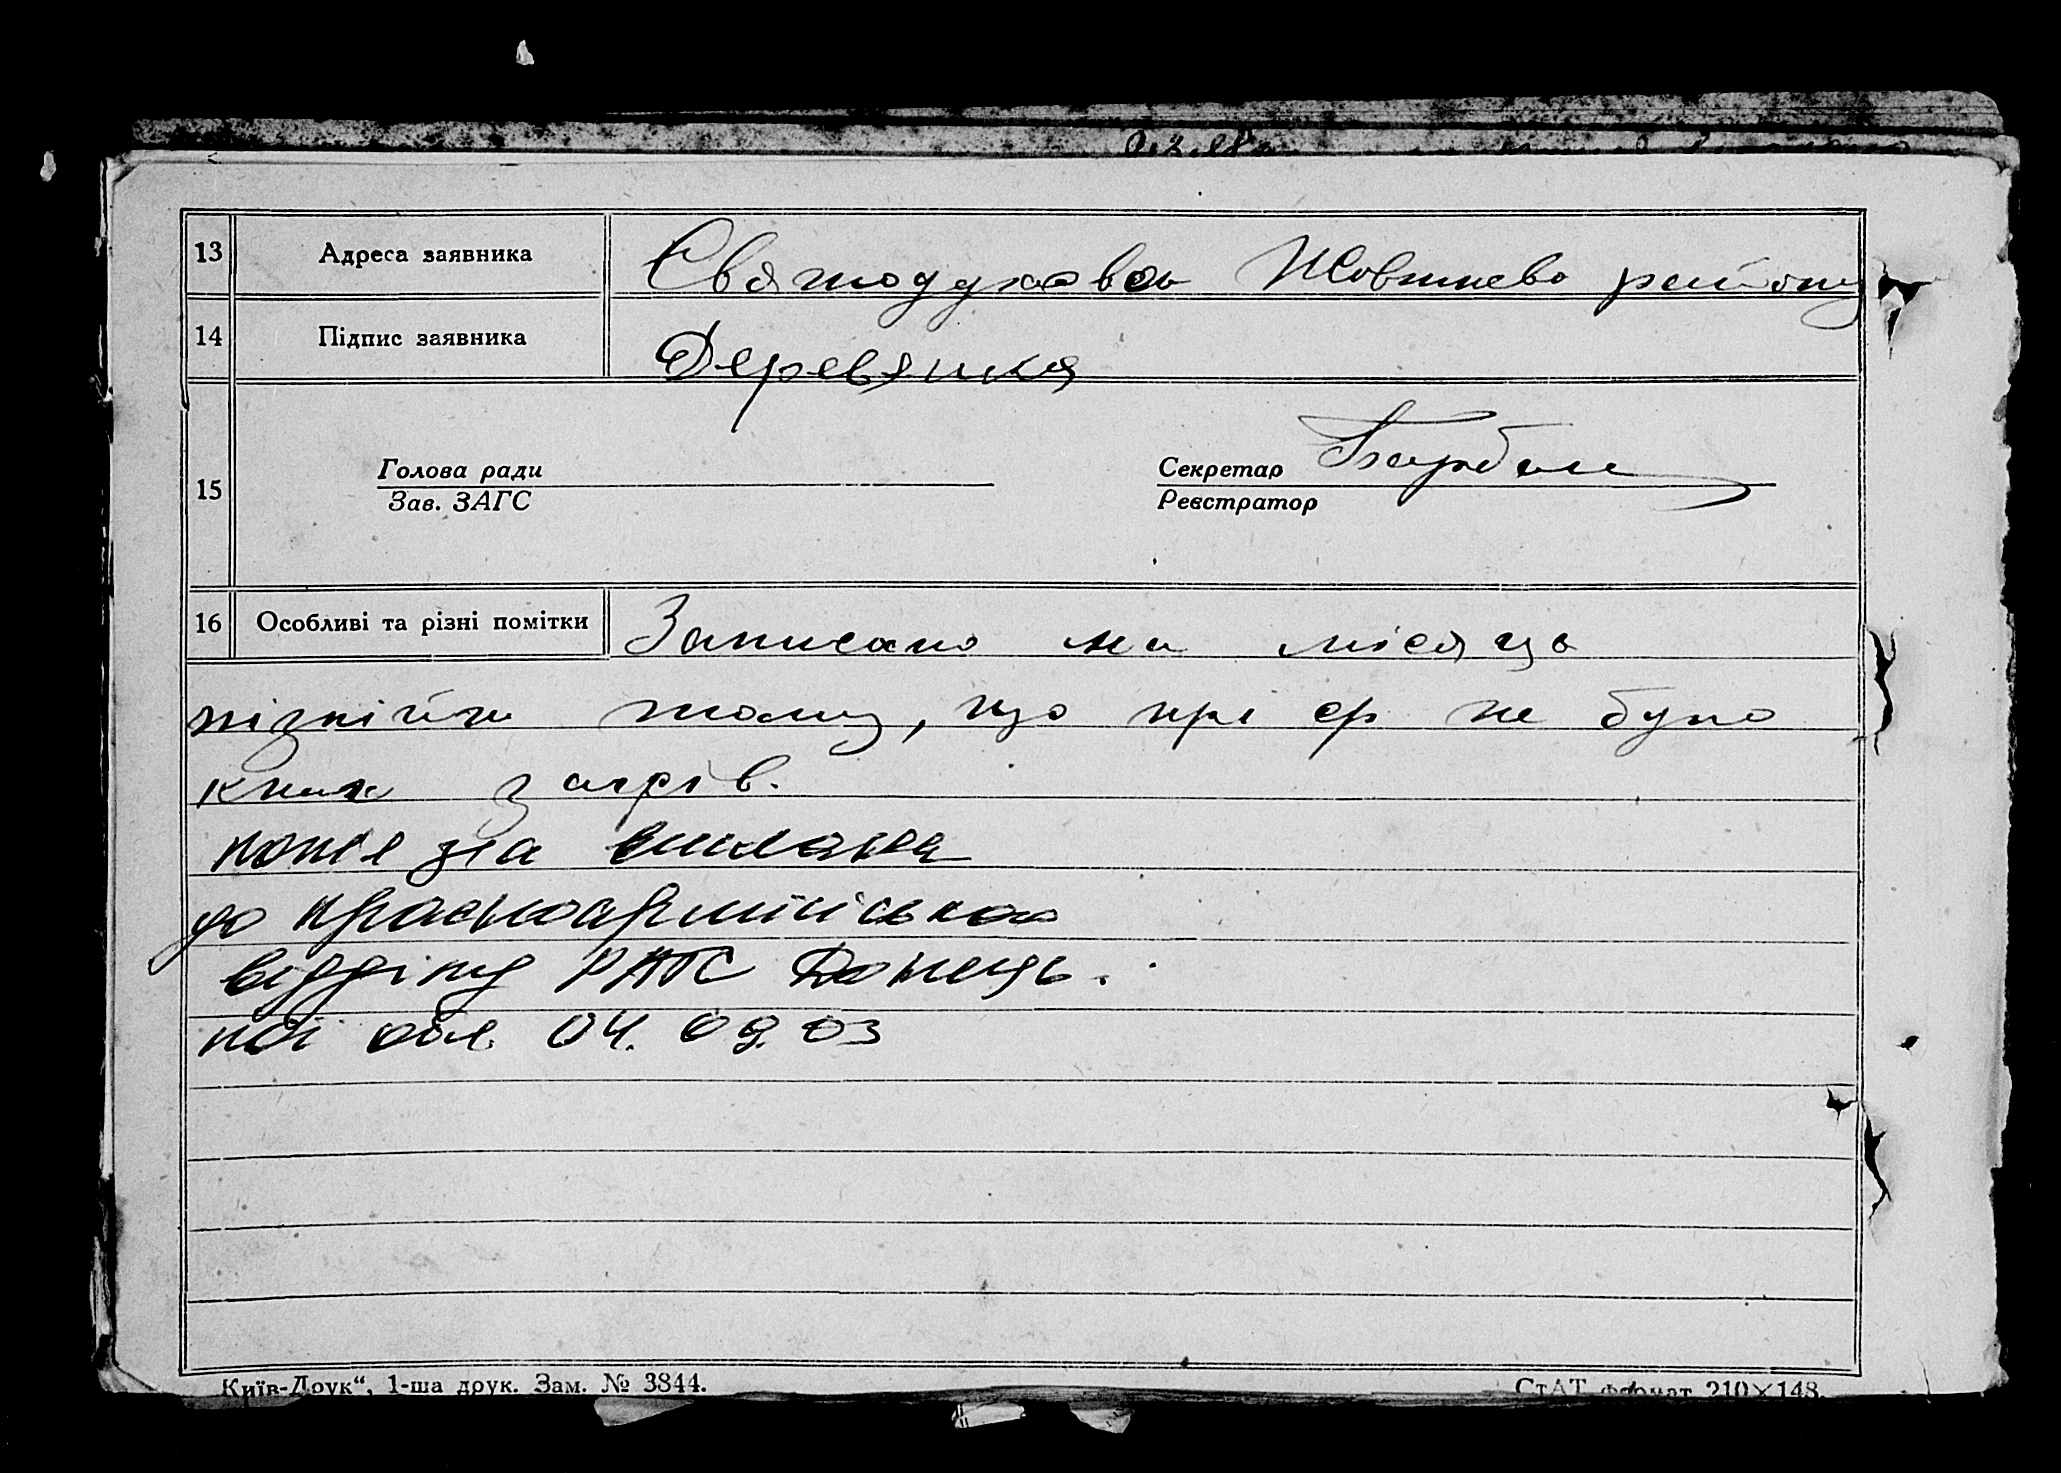 13 Адреса заявника Святодуховка Жовтнево району
14 Підпис заявника Деревянка
Голова ради Секретар
15
Зав. ЗАГС Реєстратор
16 Особливі та різні помітки Записано на місяць
пізнійш тому, що при ср не було
книж загсів.
копія з/а вислана
до Красноармійського
відділу РАГС Донець.
кої обл. 04. 09. 03
Київ-Друк“, 1-ша друк. Зам. № 3844. СтАТ формат 210×148.